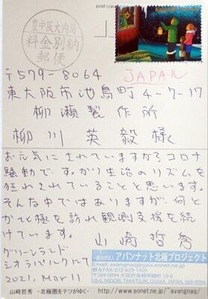 料金別納
郵便
〒579-8064 JAPAN
東大阪市池島町4-7-17
柳瀬製作所
柳川英毅様
お元気にされていますか?コロナ
騒動ですっかり生活のリズムを
狂わされていることと思います。
そんな中ではありますが、何と
か北極を訪れ観測支援を続
けています。
山崎哲秀
グリーンランド
シオラパルクにて
2021. Mar 11
アバンナット北極プロジェクト
山崎哲秀 -北極圏をテツがゆく-